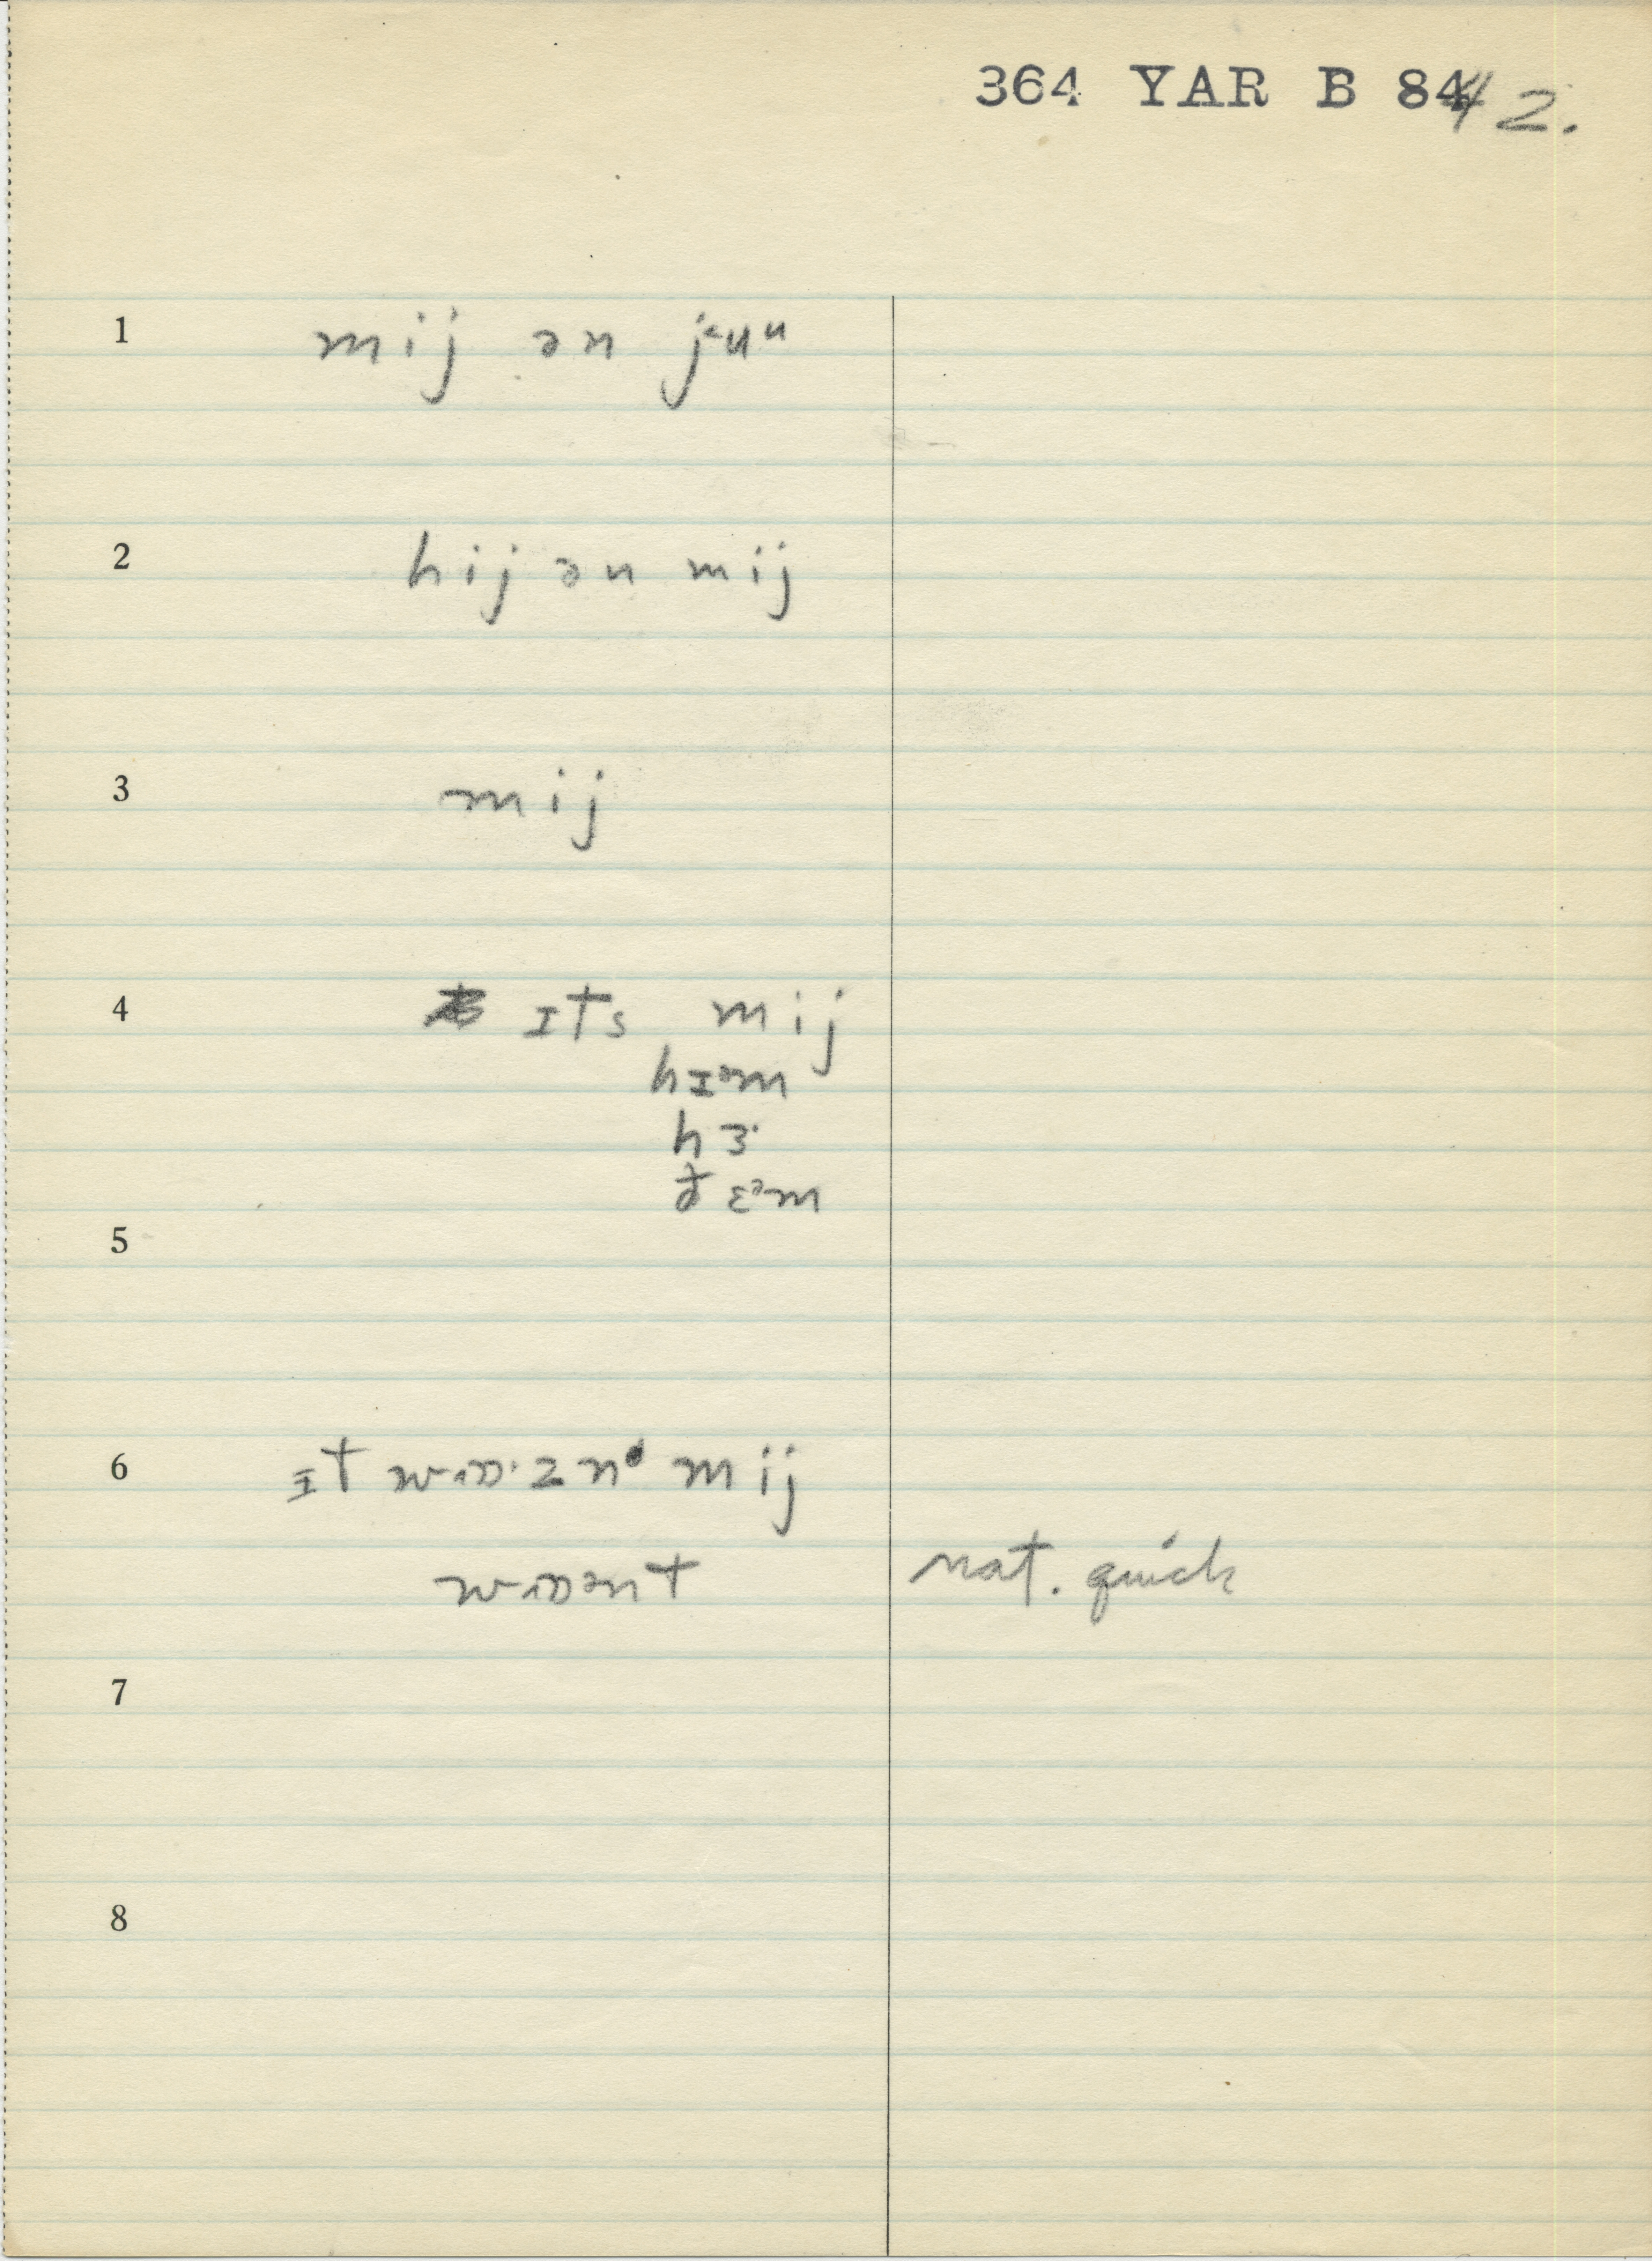 364 YAR B 84 42.
1 mij ən jᵾuᵘ
2 hij ən mij
3 mij
4 ɪts mij
hɪᵊm
hɜ˞
ðɛᵊm
5
6 ɪt mij
nat. quick
7
8